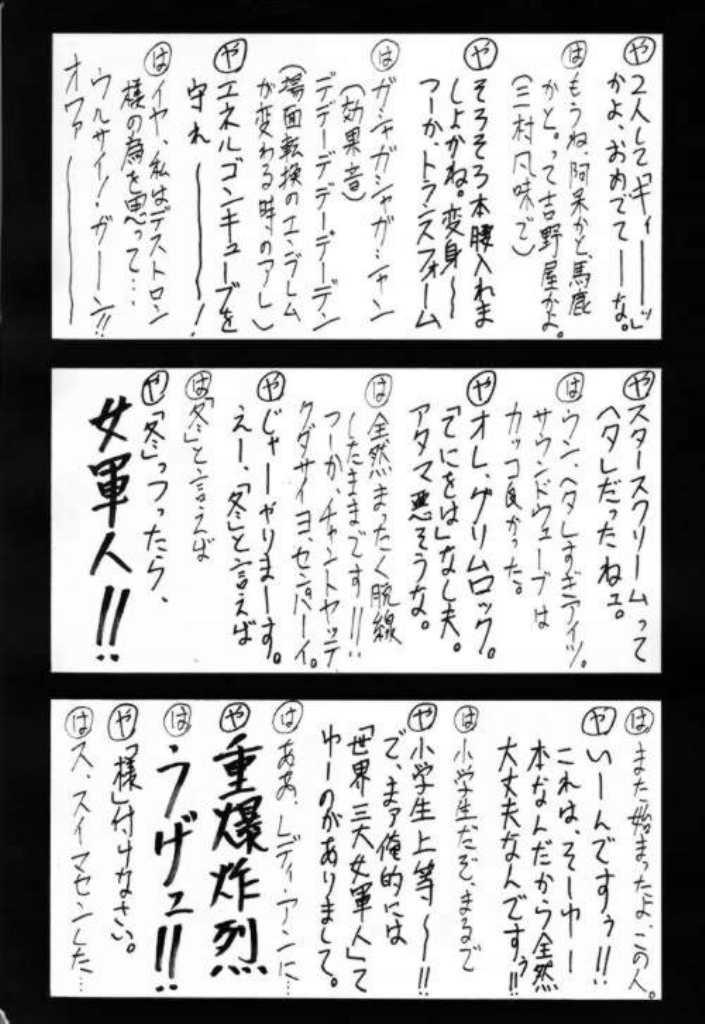 や 2人して「ギィーーーッ」
かよ、おめでてーーな。
は もうね、阿呆かと、馬鹿
かと。って吉野屋かよ。
(三村風味で)
や そろそろ本腰入れま
しょかね。変身〜〜
つーか、トランスフォーム
は ガシャガシャガシャン
(効果音)
デデーデデデーデーデン
(場面転換のエンブレム
が変わる時のアレ)
や エネルゴンキューブを
守れーーー!
は イヤ、私はデストロン
様の為を思って…
ウルサイ!ガーン!!
オワァーーーー
や スタースクリームって
ヘタレだったねェ。
は ウン、ヘタレすぎアイツ。
サウンドウェーブは
カッコ良かった。
や オレ、グリムロック。
「てにをは」なし夫。
アタマ悪そうな。
は 全然まったく脱線
したままです!!!
つーか、チャントヤッテ
クダサイヨ、センパーイ。
や じゃーやりまーす。
えー、「冬」と言えば
は 「冬」と言えば
や 「冬」っつったら、
女軍人!!
は また始まったよ、この人。
や いーんですぅ!!
これは、そーゆー
本なんだから全然
大丈夫なんですぅ!!
は 小学生だぞ、まるで
や 小学生上等〜!!
で、まァ俺的には
「世界三大女軍人」て
ゆーのがありまして。
は ああ、レディ・アンに…
や 重爆炸烈
は うげェ!!
や 「様」付けなさい。
は ス、スイマセンした…